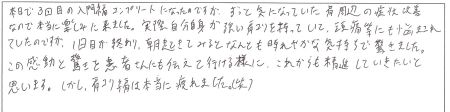 本日で3回目の入門編コンプリートになったのですが、ずっと気になっていた肩周辺の症状改善
なので本当に楽しみに来ました。実際、自分自身が強い肩こりを持っていて、頭痛等にも悩まされ
ていたのですが、1回目が終わり、朝起きてみるとなんとも晴れやかな気持ちで驚きました。
この感動と驚きを患者さんにも伝えて行ける様に、これからも精進していきたいと
思います。しかし、肩こり編は本当に疲れました。(笑)